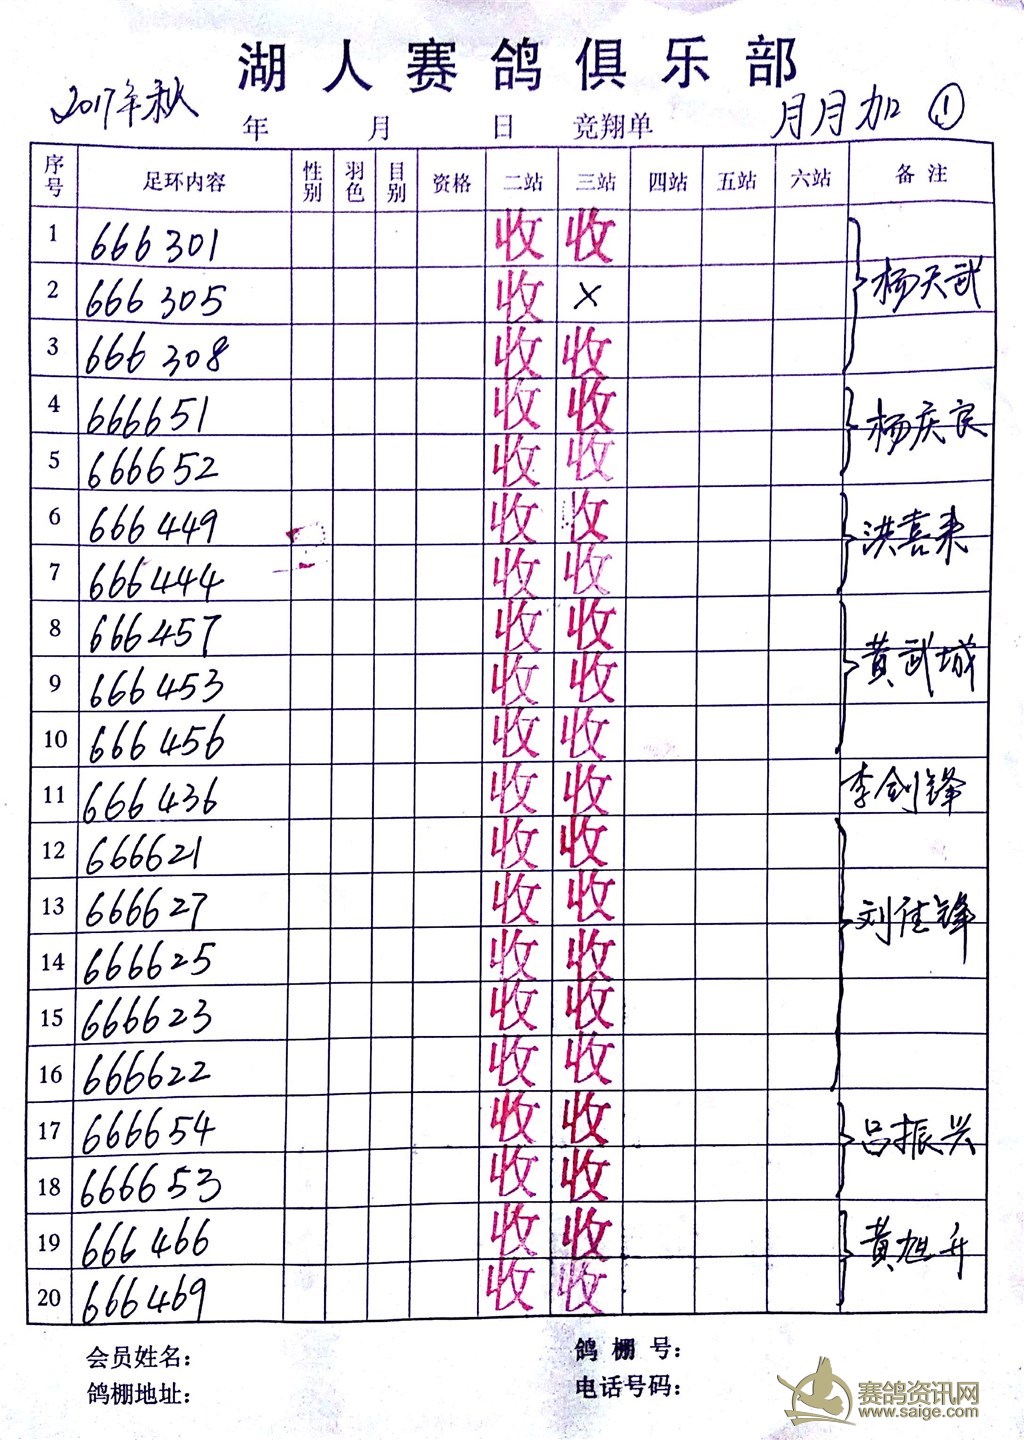 湖人赛鸽俱乐部
2017年秋 年 月 日 竞翔单 月月加 ①
序号 足环内容 性别 羽色 目别 资格 二站 三站 四站 五站 六站 备注
1 666301 收 收
2 666305 收 × 杨天武
3 666308 收 收
4 666651 收 收 杨庆良
5 666652 收 收
6 666449 收 收 洪喜来
7 666444 收 收
8 666457 收 收 黄武城
9 666453 收 收
10 666456 收 收
11 666436 收 收 李剑锋
12 666621 收 收
13 666627 收 收 刘佳锋
14 666625 收 收
15 666623 收 收
16 666622 收 收
17 666654 收 收 吕振兴
18 666653 收 收
19 666466 收 收 黄旭升
20 666469 收 收
会员姓名： 鸽棚号：
鸽棚地址： 电话号码：
赛鸽资讯网
www.saige.com